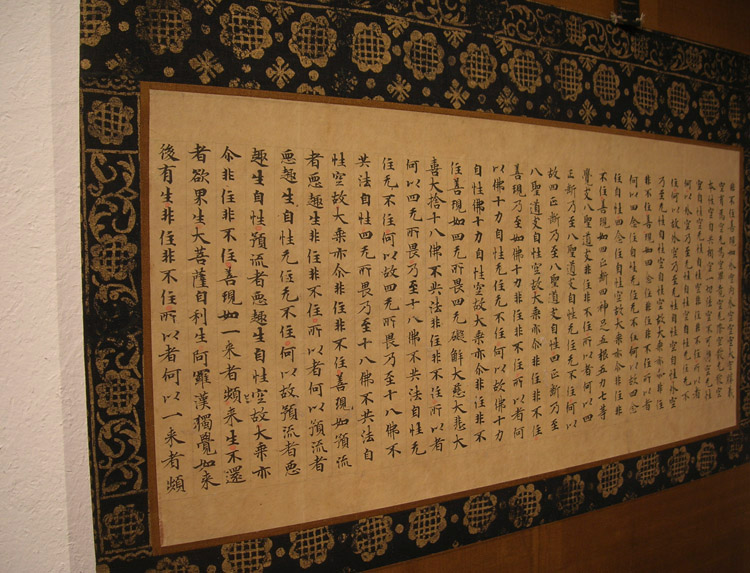 非不住善現如內空內外空空空大空勝義
本性空自共相空一切法空不可得空无性
乃至无性自性空自性空故大乘亦尒非住
非不住善現如四念住非住非不住所以者
何以四念住自性无住无不住何以故四念
住自性四念住自性空故大乘亦尒非住非
不住善現如四正斷四神足五根五力七等
覺支八聖道支非住非不住所以者何以四
正斷乃至八聖道支自性无住无不住何以
故四正斷乃至八聖道支自性四正斷乃至
八聖道支自性空故大乘亦尒非住非不住
善現乃至如佛十力非住非不住所以者何
以佛十力自性无住无不住何以故佛十力
自性佛十力自性空故大乘亦尒非住非不
住善現如四无所畏四无礙解大慈大悲大
喜大捨十八佛不共法非住非不住所以者
何以四无所畏乃至十八佛不共法自性无
住无不住何以故四无所畏乃至十八佛不
共法自性四无所畏乃至十八佛不共法自
性空故大乘亦尒非住非不住善現如預流
者惡趣生非住非不住所以者何以預流者
惡趣生自性无住无不住何以故預流者惡
趣生自性預流者惡趣生自性空故大乘亦
尒非住非不住善現如一来者頻来生不還
者欲界生大菩薩自利生阿羅漢獨覺如来
後有生非住非不住所以者何以一来者頻